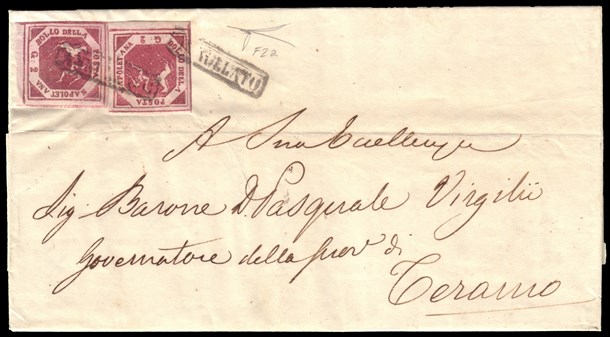 BOLLO DELLA
POSTA
NAPOLETANA
G. 2
BOLLO DELLA
POSTA
NAPOLETANA
G. 2
ANNULLATO
F22
A Sua Eccellenza
Sig. Barone D. Pasquale Virgilii
Governatore della Prov.a di
Teramo